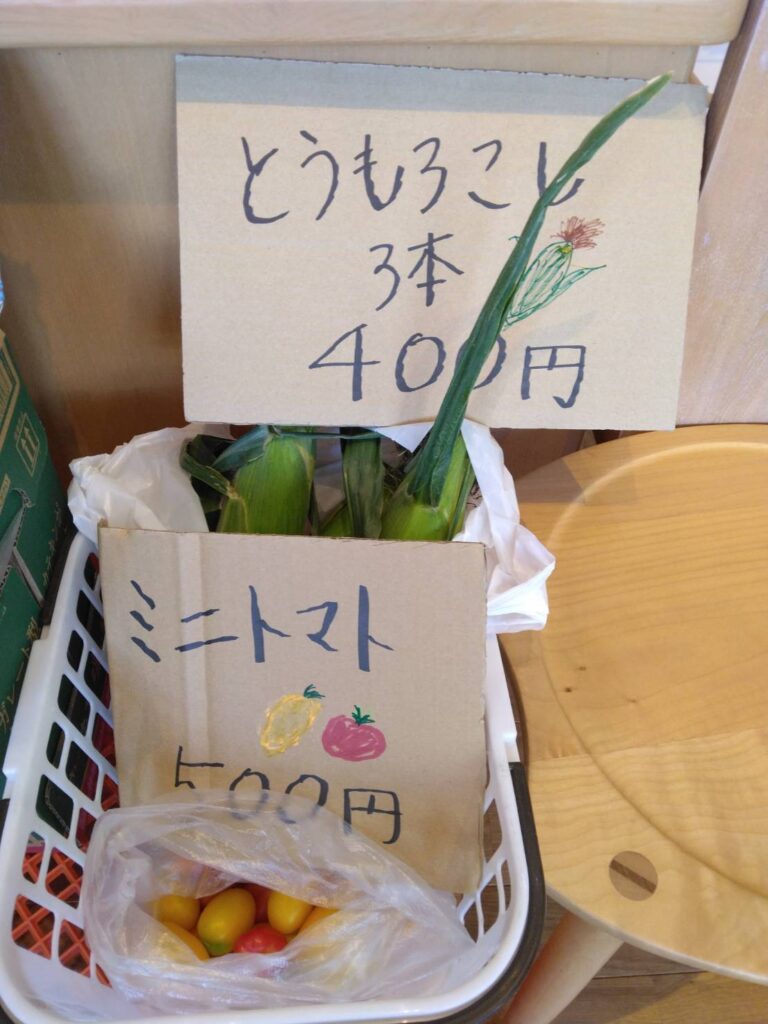 とうもろこし
3本
400円
ミニトマト
500円